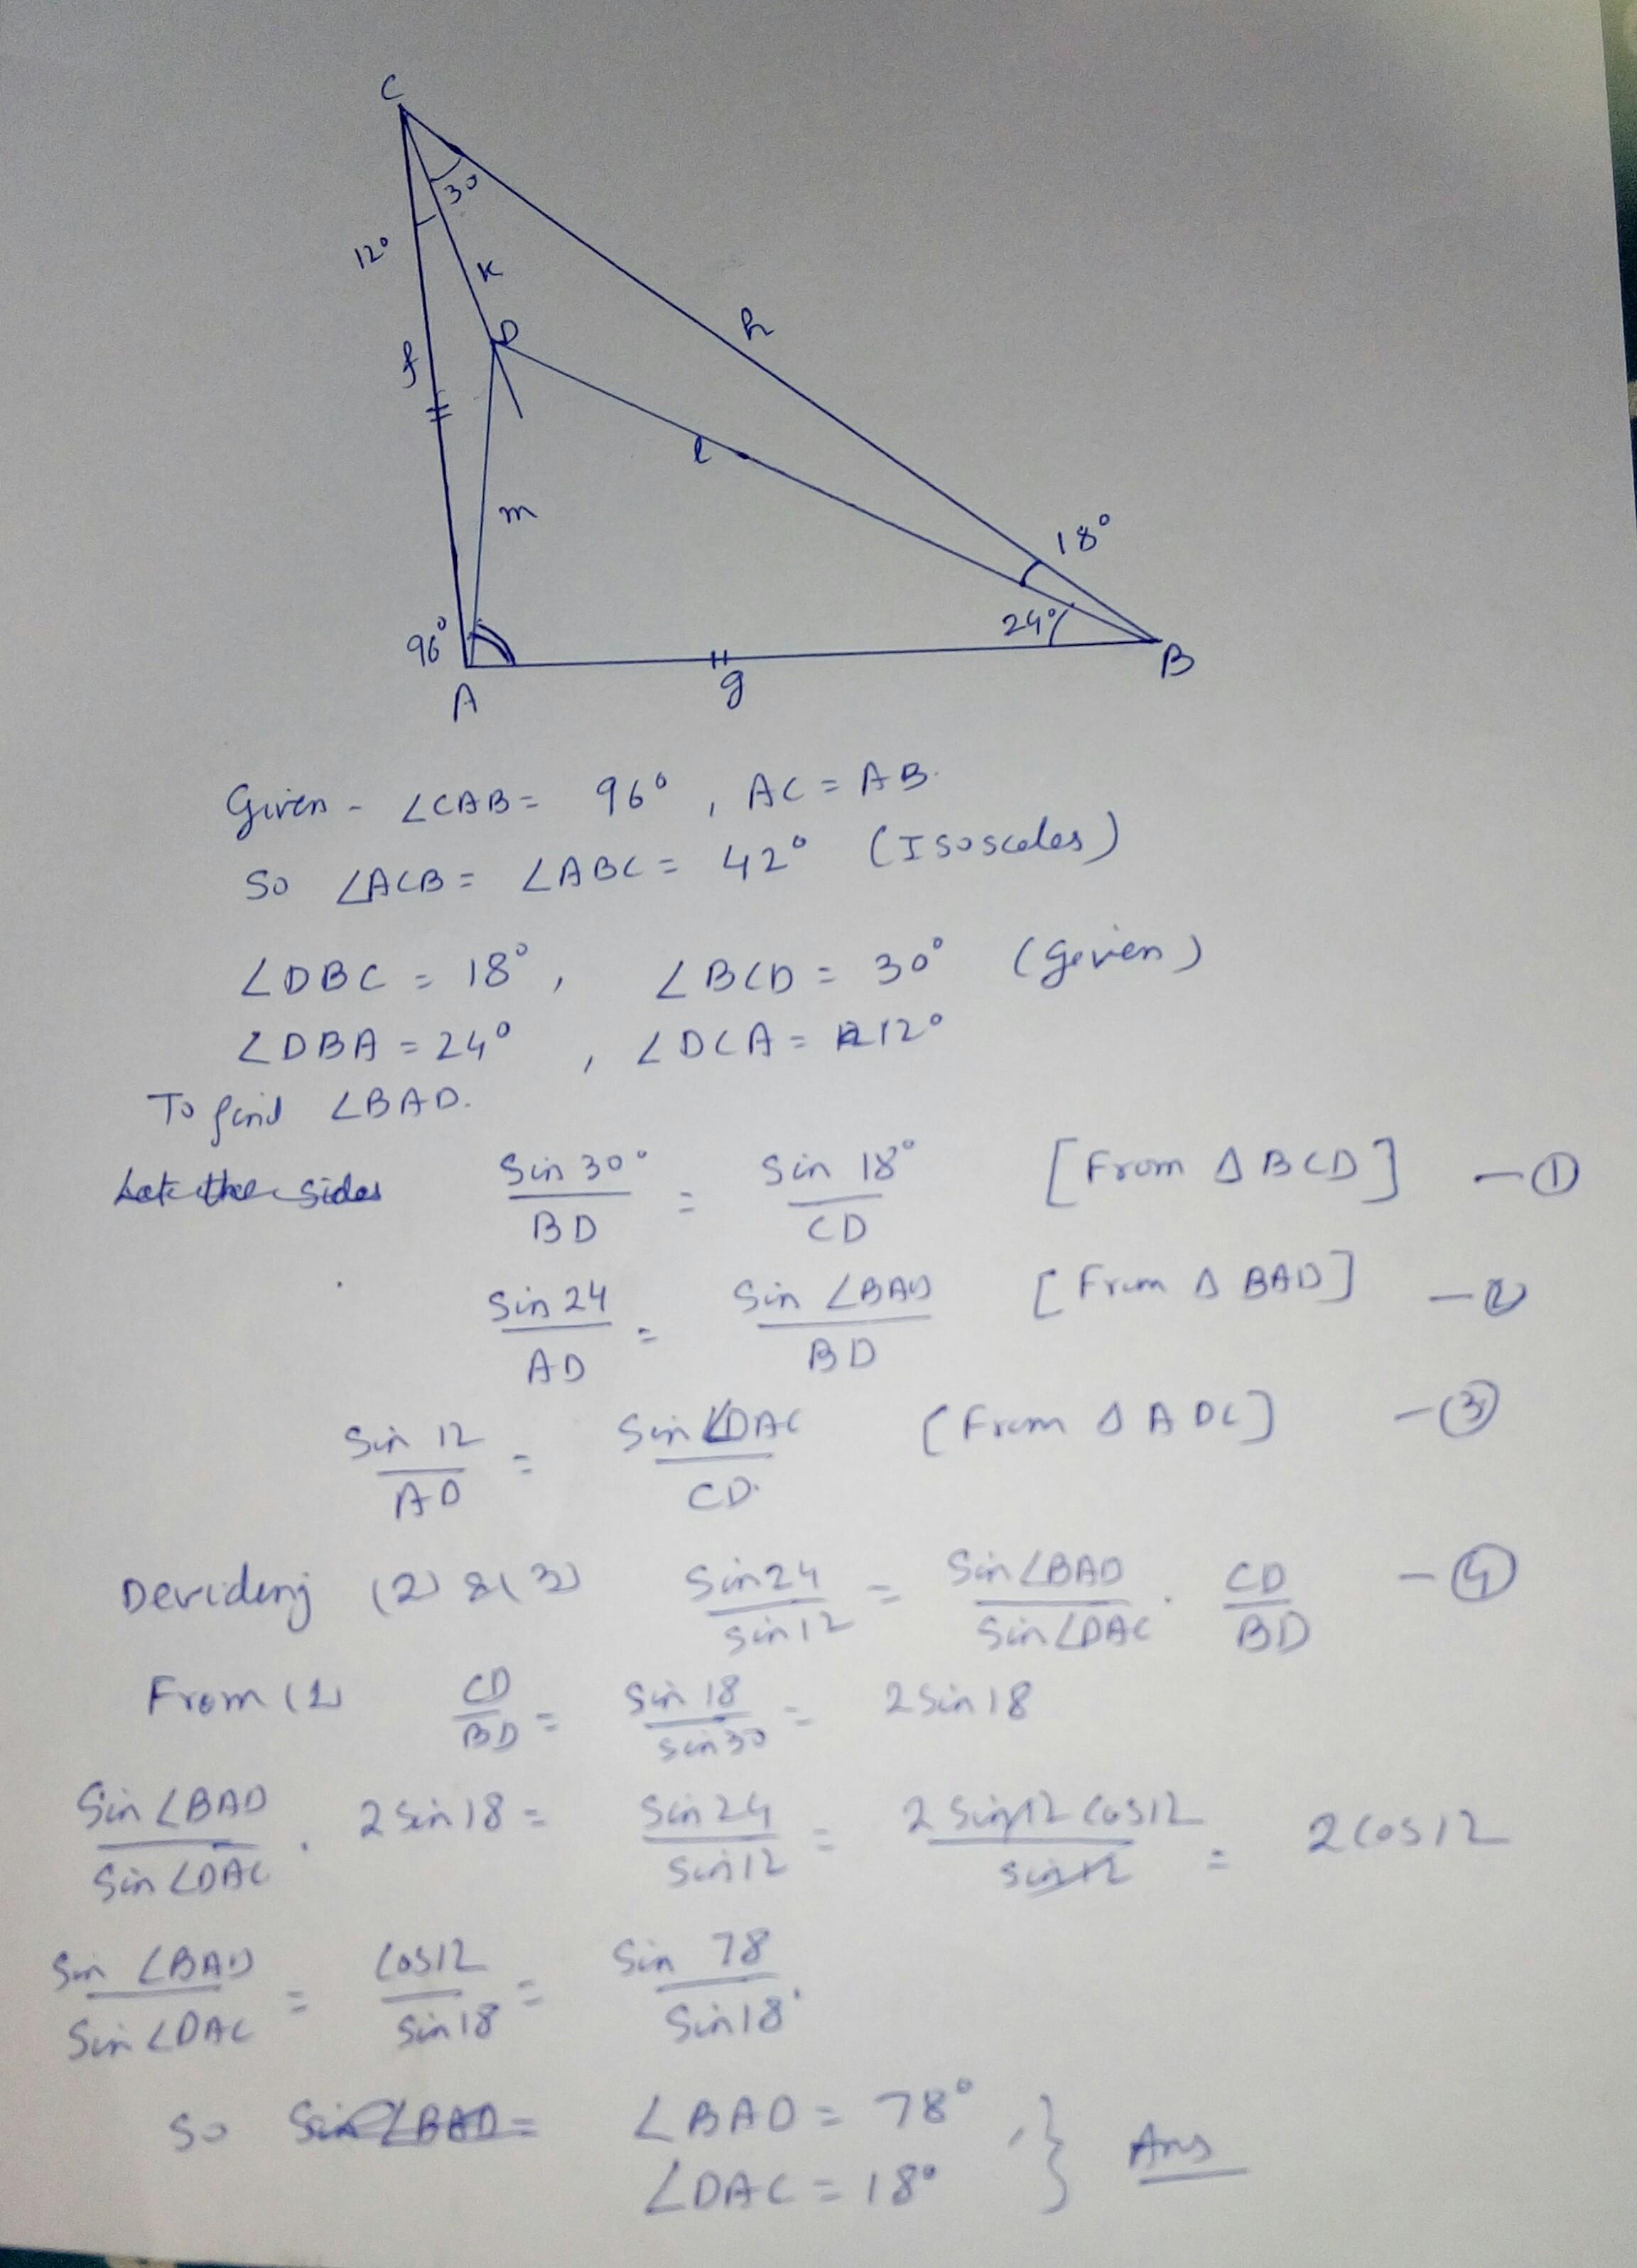 C
30
12°
K
D
h
f
l
m
18°
24°
96°
A
g
B
Given - ∠CAB = 96°, AC = AB.
So ∠ACB = ∠ABC = 42° (Isosceles)
∠DBC = 18°, ∠BCD = 30° (given)
∠DBA = 24°, ∠DCA = 12°
To find ∠BAD.
Let the sides Sin 30°/BD = Sin 18°/CD [From Δ BCD] -①
Sin 24/AD = Sin ∠BAD/BD [From Δ BAD] -②
Sin 12/AD = Sin ∠DAC/CD. [From Δ ADC] -③
Deviding (2) & (3) Sin24/Sin12 = Sin∠BAD/Sin∠DAC . CD/BD -④
From (1) CD/BD = Sin 18/Sin30 = 2 Sin 18
Sin ∠BAD/Sin ∠DAC . 2 Sin 18 = Sin 24/Sin 12 = 2 Sin12 Cos12/Sin12 = 2 Cos 12
Sin ∠BAD/Sin ∠DAC = Cos12/Sin 18 = Sin 78/Sin 18
So Sin∠BAD = ∠BAD = 78° ,
∠DAC = 18° } Ans